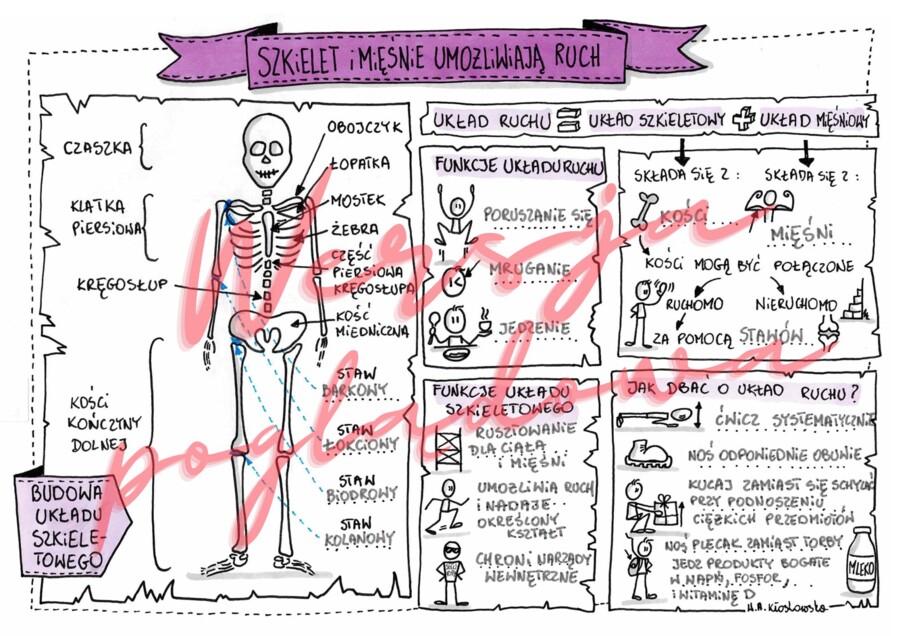 SZKIELET I MIĘŚNIE UMOŻLIWIAJĄ RUCH
CZASZKA
KLATKA
PIERSIOWA
KRĘGOSŁUP
KOŚCI
KOŃCZYNY
DOLNEJ
BUDOWA
UKŁADU
SZKIELE-
TOWEGO
OBOJCZYK
ŁOPATKA
MOSTEK
ŻEBRA
CZĘŚĆ
PIERSIOWA
KRĘGOSŁUPA
KOŚĆ
MIEDNICZNA
STAW
BARKOWY
STAW
ŁOKCIOWY
STAW
BIODROWY
STAW
KOLANOWY
UKŁAD RUCHU = UKŁAD SZKIELETOWY + UKŁAD MIĘŚNIOWY
FUNKCJE UKŁADU RUCHU
PORUSZANIE SIĘ
MRUGANIE
JEDZENIE
SKŁADA SIĘ Z : SKŁADA SIĘ Z :
KOŚCI
MIĘŚNI
KOŚCI MOGĄ BYĆ POŁĄCZONE
RUCHOMO NIERUCHOMO
ZA POMOCĄ STAWÓW
FUNKCJE UKŁADU
SZKIELETOWEGO
RUSZTOWANIE
DLA CIAŁA
I MIĘŚNI
UMOŻLIWIA RUCH
I NADAJE
OKREŚLONY
KSZTAŁT
CHRONI NARZĄDY
WEWNĘTRZNE
JAK DBAĆ O UKŁAD RUCHU?
ĆWICZ SYSTEMATYCZNIE
NOŚ ODPOWIEDNIE OBUWIE
KUCAJ ZAMIAST SIĘ SCHYLAĆ
PRZY PODNOSZENIU
CIĘŻKICH PRZEDMIOTÓW
NOŚ PLECAK ZAMIAST TORBY
JEDZ PRODUKTY BOGATE
W WAPŃ, FOSFOR,
I WITAMINĘ D
MLEKO
Wersja
poglądowa